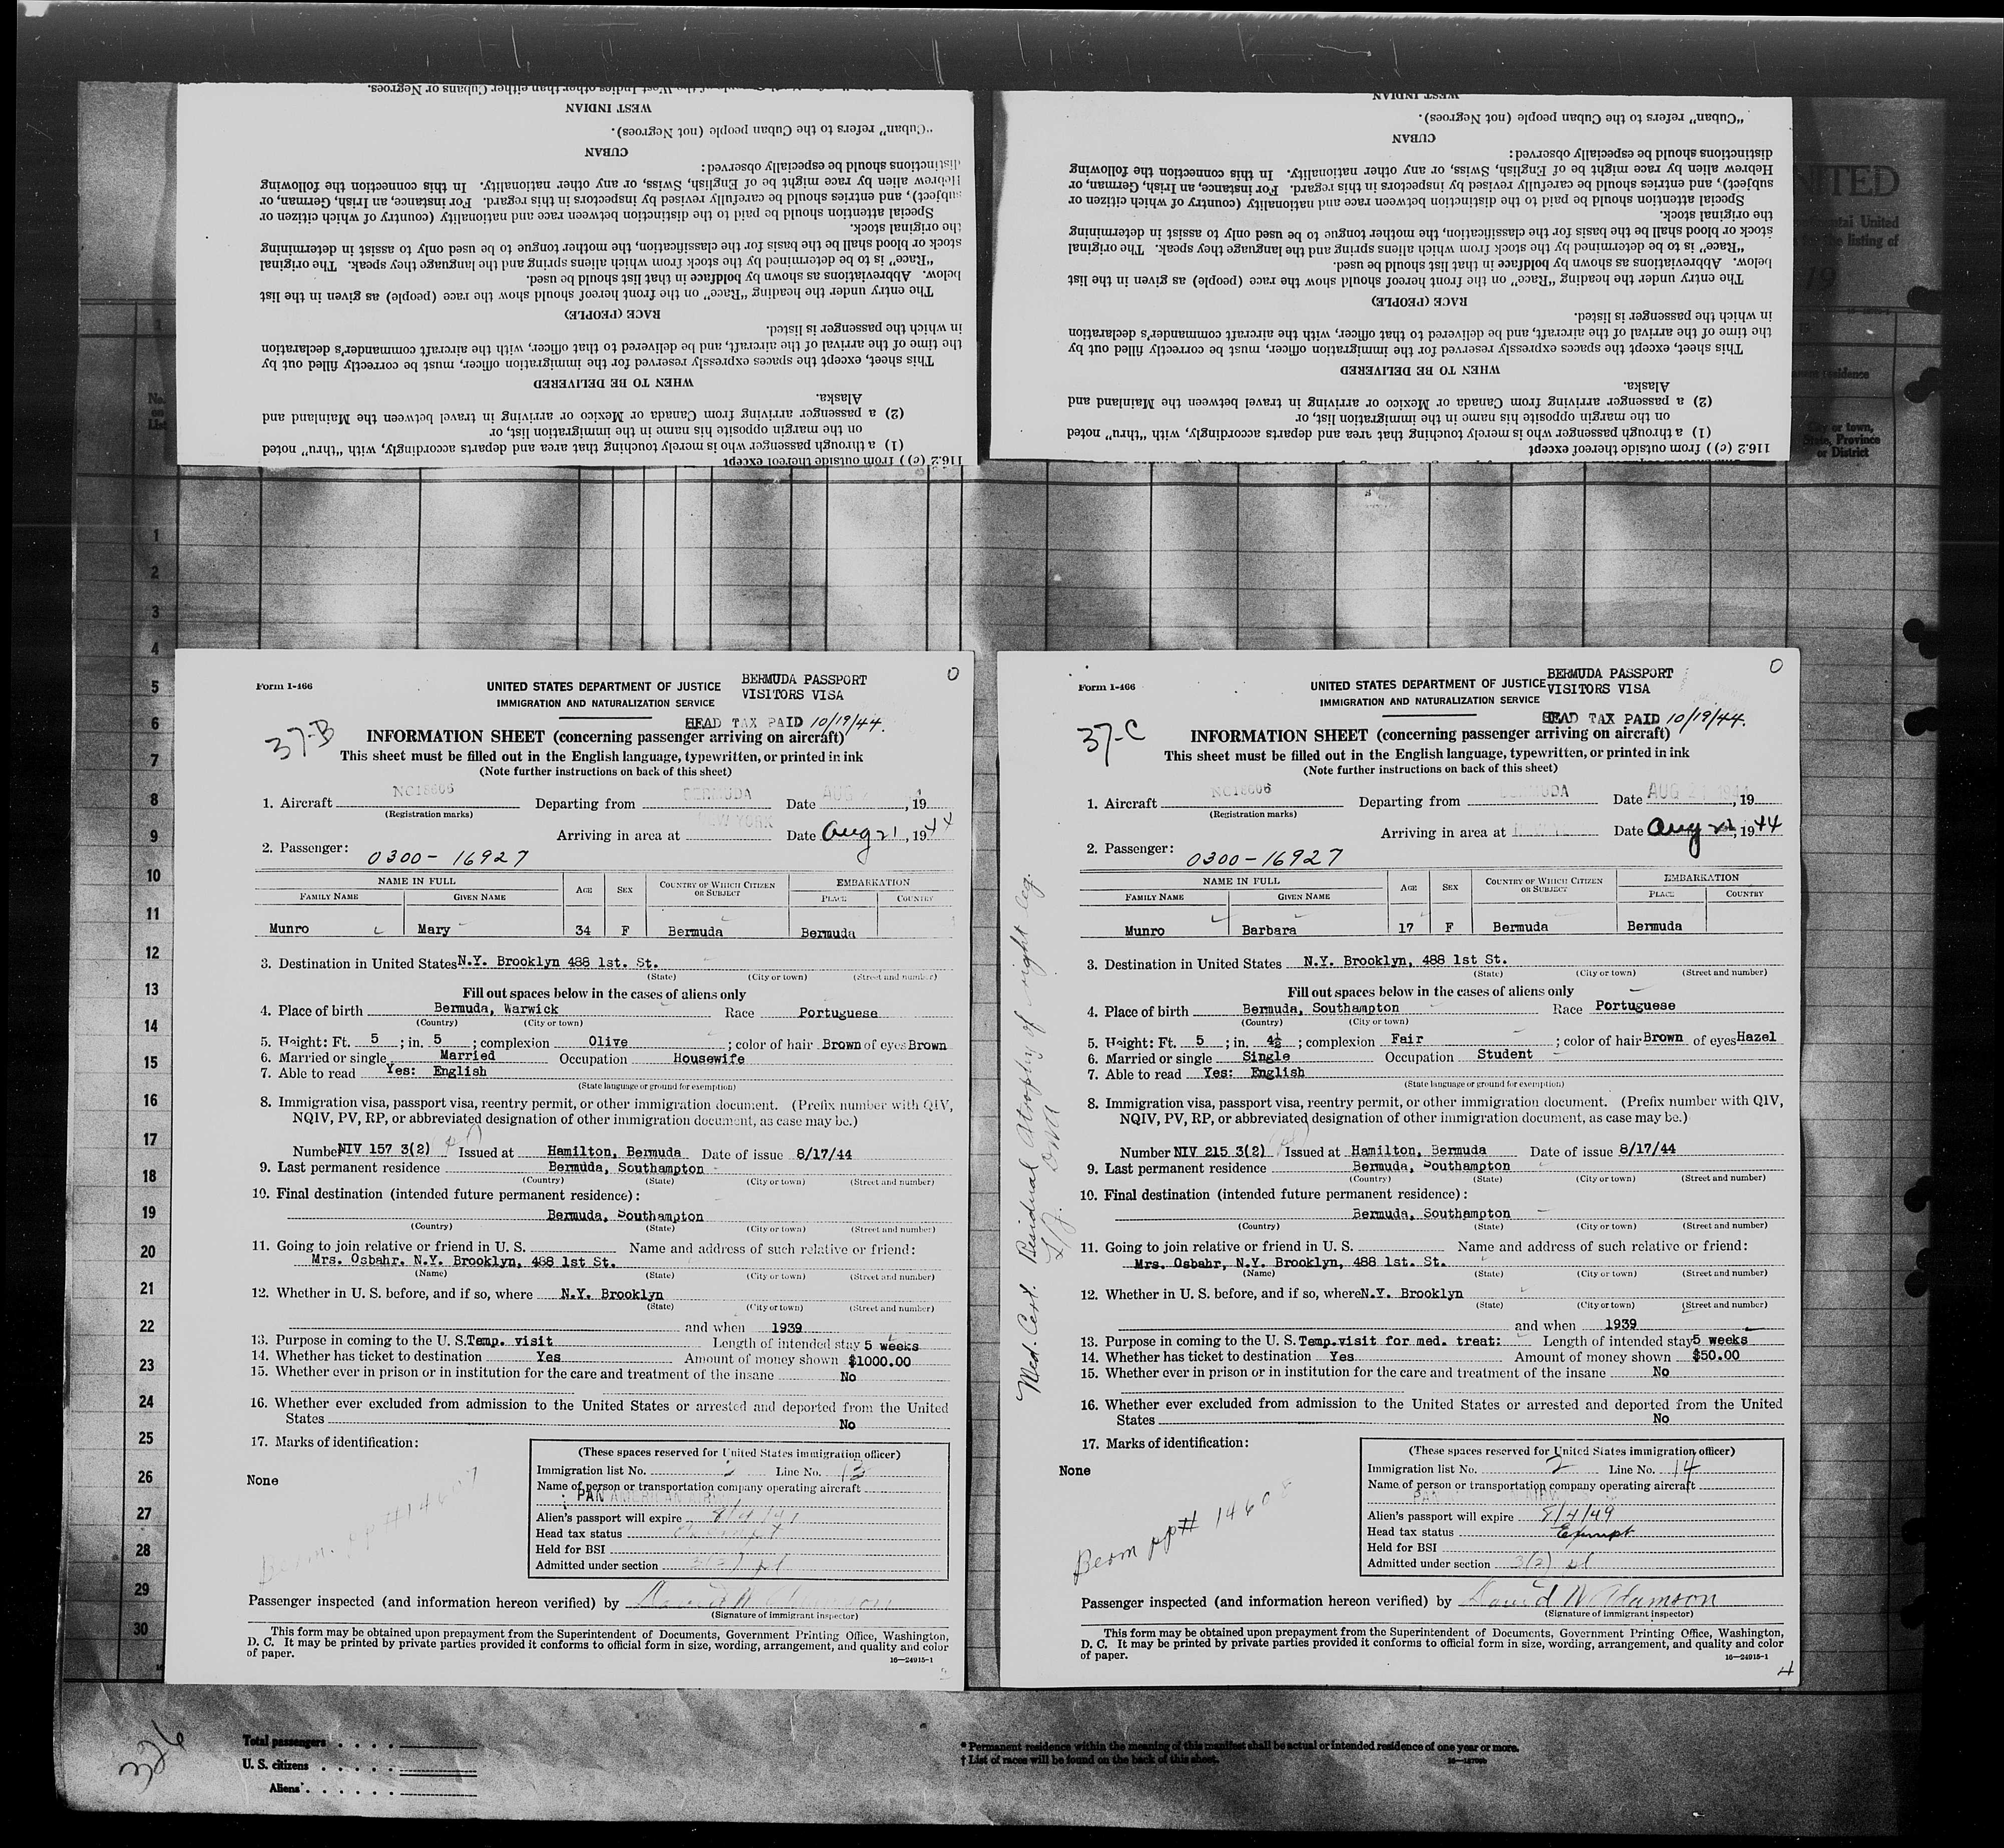 WEST INDIAN
"Cuban" refers to the Cuban people (not Negroes).
CUBAN
distinctions should be especially observed:
Hebrew alien by race might be of English, Swiss, or any other nationality. In this connection the following
subject), and entries should be carefully revised by inspectors in this regard. For instance, an Irish, German, or
Special attention should be paid to the distinction between race and nationality (country of which citizen or
the original stock.
stock or blood shall be the basis for the classification, the mother tongue to be used only to assist in determining
"Race" is to be determined by the stock from which aliens spring and the language they speak. The original
below. Abbreviations as shown by boldface in that list should be used.
The entry under the heading "Race" on the front hereof should show the race (people) as given in the list
RACE (PEOPLE)
in which the passenger is listed.
the time of the arrival of the aircraft, and be delivered to that officer, with the aircraft commander's declaration
This sheet, except the spaces expressly reserved for the immigration officer, must be correctly filled out by
WHEN TO BE DELIVERED
Alaska.
(2) a passenger arriving from Canada or Mexico or arriving in travel between the Mainland and
on the margin opposite his name in the immigration list, or
(1) a through passenger who is merely touching that area and departs accordingly, with "thru" noted
116.2 (c)) from outside thereof except
WEST INDIAN
"Cuban" refers to the Cuban people (not Negroes).
CUBAN
distinctions should be especially observed:
Hebrew alien by race might be of English, Swiss, or any other nationality. In this connection the following
subject), and entries should be carefully revised by inspectors in this regard. For instance, an Irish, German, or
Special attention should be paid to the distinction between race and nationality (country of which citizen or
the original stock.
stock or blood shall be the basis for the classification, the mother tongue to be used only to assist in determining
"Race" is to be determined by the stock from which aliens spring and the language they speak. The original
below. Abbreviations as shown by boldface in that list should be used.
The entry under the heading "Race" on the front hereof should show the race (people) as given in the list
RACE (PEOPLE)
in which the passenger is listed.
the time of the arrival of the aircraft, and be delivered to that officer, with the aircraft commander's declaration
This sheet, except the spaces expressly reserved for the immigration officer, must be correctly filled out by
WHEN TO BE DELIVERED
Alaska.
(2) a passenger arriving from Canada or Mexico or arriving in travel between the Mainland and
on the margin opposite his name in the immigration list, or
(1) a through passenger who is merely touching that area and departs accordingly, with "thru" noted
116.2 (c)) from outside thereof except
United
the listing of
19
residence
City or town,
State, Province
or District
No.
on
List
1
2
3
4
5
6
7
8
9
10
11
12
13
14
15
16
17
18
19
20
21
22
23
24
25
26
27
28
29
30
0
Form I-466
UNITED STATES DEPARTMENT OF JUSTICE
IMMIGRATION AND NATURALIZATION SERVICE
BERMUDA PASSPORT
VISITORS VISA
HEAD TAX PAID 10/19/44.
37-B
INFORMATION SHEET (concerning passenger arriving on aircraft)
This sheet must be filled out in the English language, typewritten, or printed in ink
(Note further instructions on back of this sheet)
1. Aircraft NC18606 Departing from BERMUDA Date AUG , 19
(Registration marks)
Arriving in area at NEW YORK Date Aug 21, 1944
2. Passenger: 0300-16927
NAME IN FULL AGE SEX COUNTRY OF WHICH CITIZEN OR SUBJECT EMBARKATION
FAMILY NAME GIVEN NAME PLACE COUNTRY
Munro Mary 34 F Bermuda Bermuda
3. Destination in United States N.Y. Brooklyn 488 1st. St.
(State) (City or town) (Street and number)
Fill out spaces below in the cases of aliens only
4. Place of birth Bermuda, Warwick Race Portuguese
(Country) (City or town)
5. Height: Ft. 5 ; in. 5 ; complexion Olive ; color of hair Brown of eyes Brown
6. Married or single Married Occupation Housewife
7. Able to read Yes: English
(State language or ground for exemption)
8. Immigration visa, passport visa, reentry permit, or other immigration document. (Prefix number with QIV,
NQIV, PV, RP, or abbreviated designation of other immigration document, as case may be.)
Number NIV 157 3(2) Issued at Hamilton, Bermuda Date of issue 8/17/44
9. Last permanent residence Bermuda, Southampton
(Country) (State) (City or town) (Street and number)
10. Final destination (intended future permanent residence):
Bermuda, Southampton
(Country) (State) (City or town) (Street and number)
11. Going to join relative or friend in U. S. Name and address of such relative or friend:
Mrs. Osbahr. N.Y. Brooklyn, 488 1st St.
(Name) (State) (City or town) (Street and number)
12. Whether in U. S. before, and if so, where N.Y. Brooklyn
(State) (City or town) (Street and number)
and when 1939
13. Purpose in coming to the U. S. Temp. visit Length of intended stay 5 weeks
14. Whether has ticket to destination Yes Amount of money shown $1000.00
15. Whether ever in prison or in institution for the care and treatment of the insane No
16. Whether ever excluded from admission to the United States or arrested and deported from the United
States No
17. Marks of identification:
None
Berm. pp #14607
(These spaces reserved for United States immigration officer)
Immigration list No. 2 Line No. 13
Name of person or transportation company operating aircraft
PAN AMERICAN AIRW
Alien's passport will expire
Head tax status
Held for BSI
Admitted under section 3(2) pl
Passenger inspected (and information hereon verified) by David W Adamson
(Signature of immigrant inspector)
This form may be obtained upon prepayment from the Superintendent of Documents, Government Printing Office, Washington,
D. C. It may be printed by private parties provided it conforms to official form in size, wording, arrangement, and quality and color
of paper.
16—24915-1
0
Form I-466
UNITED STATES DEPARTMENT OF JUSTICE
IMMIGRATION AND NATURALIZATION SERVICE
BERMUDA PASSPORT
VISITORS VISA
HEAD TAX PAID 10/19/44.
37-C
INFORMATION SHEET (concerning passenger arriving on aircraft)
This sheet must be filled out in the English language, typewritten, or printed in ink
(Note further instructions on back of this sheet)
1. Aircraft NC18606 Departing from BERMUDA Date AUG 21 1944, 19
(Registration marks)
Arriving in area at Date Aug 21, 1944
2. Passenger: 0300-16927
NAME IN FULL AGE SEX COUNTRY OF WHICH CITIZEN OR SUBJECT EMBARKATION
FAMILY NAME GIVEN NAME PLACE COUNTRY
Munro Barbara 17 F Bermuda Bermuda
3. Destination in United States N.Y. Brooklyn, 488 1st St.
(State) (City or town) (Street and number)
Fill out spaces below in the cases of aliens only
4. Place of birth Bermuda, Southampton Race Portuguese
(Country) (City or town)
5. Height: Ft. 5 ; in. 4½ ; complexion Fair ; color of hair Brown of eyes Hazel
6. Married or single Single Occupation Student
7. Able to read Yes: English
(State language or ground for exemption)
8. Immigration visa, passport visa, reentry permit, or other immigration document. (Prefix number with QIV,
NQIV, PV, RP, or abbreviated designation of other immigration document, as case may be.)
Number NIV 215 3(2) Issued at Hamilton, Bermuda Date of issue 8/17/44
9. Last permanent residence Bermuda, Southampton
(Country) (State) (City or town) (Street and number)
10. Final destination (intended future permanent residence):
Bermuda, Southampton
(Country) (State) (City or town) (Street and number)
11. Going to join relative or friend in U. S. Name and address of such relative or friend:
Mrs. Osbahr, N.Y. Brooklyn, 488 1st. St.
(Name) (State) (City or town) (Street and number)
12. Whether in U. S. before, and if so, where N.Y. Brooklyn
(State) (City or town) (Street and number)
and when 1939
13. Purpose in coming to the U. S. Temp.visit for med. treat: Length of intended stay 5 weeks
14. Whether has ticket to destination Yes Amount of money shown $50.00
15. Whether ever in prison or in institution for the care and treatment of the insane No
16. Whether ever excluded from admission to the United States or arrested and deported from the United
States No
17. Marks of identification:
None
Berm pp# 14608
(These spaces reserved for United States immigration officer)
Immigration list No. 2 Line No. 14
Name of person or transportation company operating aircraft
Alien's passport will expire 8/4/49
Head tax status Exempt
Held for BSI
Admitted under section 3(2) pl
Passenger inspected (and information hereon verified) by David W Adamson
(Signature of immigrant inspector)
This form may be obtained upon prepayment from the Superintendent of Documents, Government Printing Office, Washington,
D. C. It may be printed by private parties provided it conforms to official form in size, wording, arrangement, and quality and color
of paper.
16—24915-1
4
Med. Cert. Residual Atrophy of right leg.
326
Total passengers
U. S. citizens
Aliens
* Permanent residence within the meaning of this manifest shall be actual or intended residence of one year or more.
† List of races will be found on the back of this sheet.